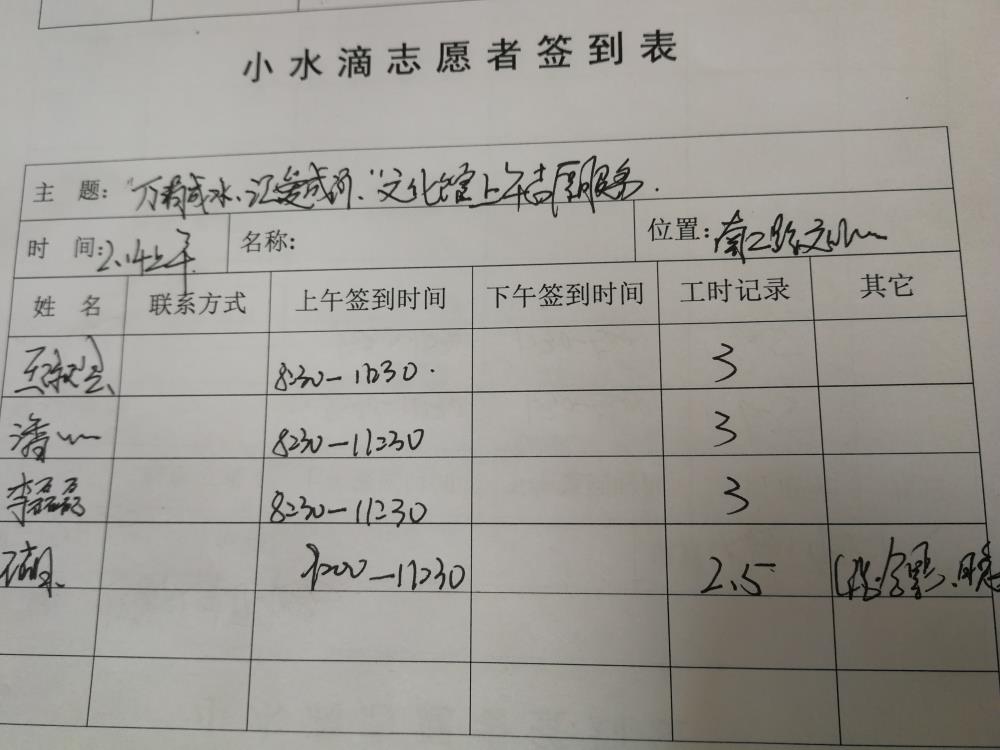 小水滴志愿者签到表
主 题: "万有成冰.汇爱成河."文化馆上午志愿服务.
时 间: 2.14上午 名称: 位置: 南二路文
姓 名 联系方式 上午签到时间 下午签到时间 工时记录 其它
8:30-11:30. 3
潘 8:30-11:30 3
李磊磊 8:30-11:30 3
9:00-11:30 2.5